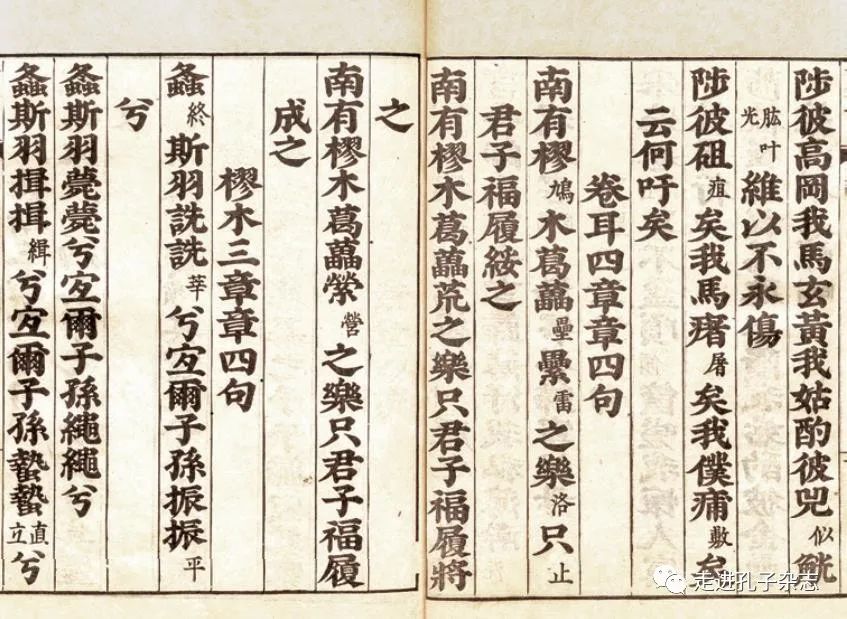 陟彼高岡我馬玄黃我姑酌彼兕似觥
肱叶光維以不永傷
陟彼砠疽矣我馬瘏屠矣我僕痡敷矣
云何吁矣
卷耳四章章四句
南有樛鳩木葛藟壘纍雷之樂洛只止
君子福履綏之
南有樛木葛藟荒之樂只君子福履將
之
南有樛木葛藟縈營之樂只君子福履
成之
樛木三章章四句
螽終斯羽詵詵莘兮宜爾子孫振振平
兮
螽斯羽薨薨兮宜爾子孫繩繩兮
螽斯羽揖揖緝兮宜爾子孫蟄蟄直立兮
走进孔子杂志